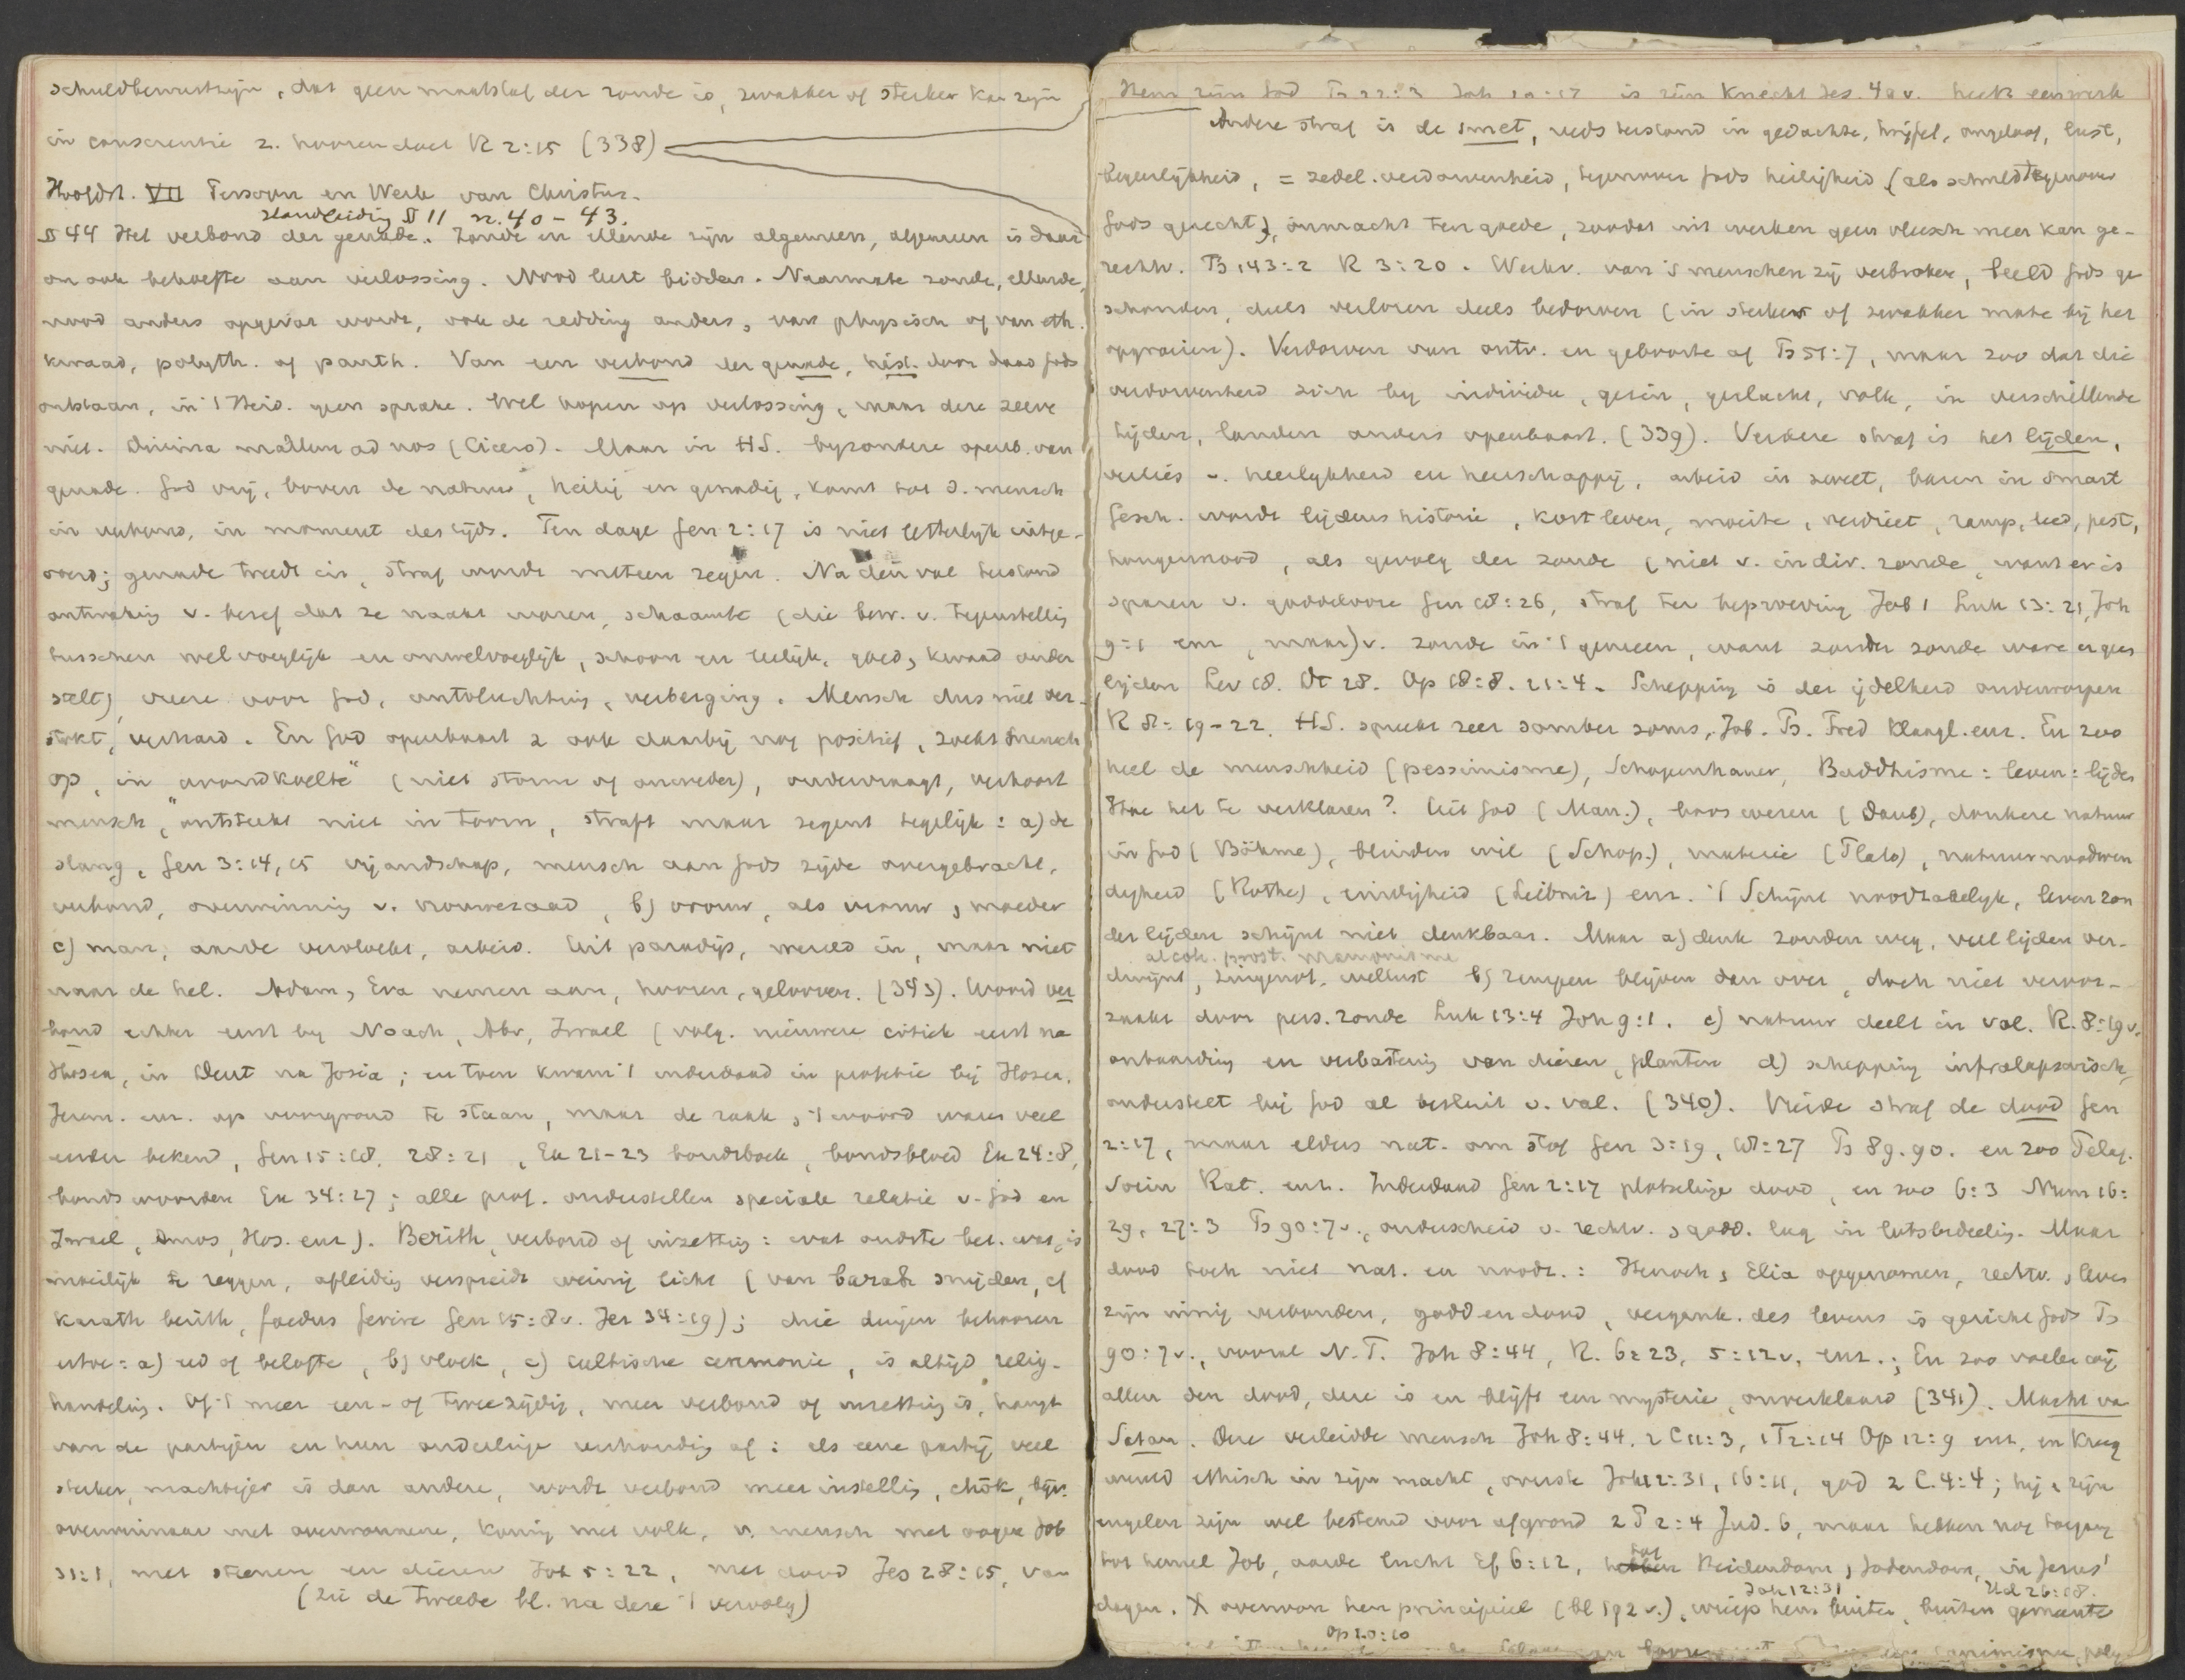 schuldbewustzijn, dat geen maatstaf der zonde is, zwakker of sterker kan zijn
in conscientie z. hooren doet R 2:15 (338)
Hoofdst. VII Persoon en Werk van Christus.
Handleiding § 11 n. 40 - 43.
§ 44 Het verbond der genade. Zonde en ellende zijn algemeen, algemeen is daar-
om ook behoefte aan verlossing. Nood leert bidden. Naarmate zonde, ellende,
nood anders opgevat wordt, ook de redding anders, van physisch of van eth.
kwaad, polyth. of panth. Van een verbond der genade, hist. door daad Gods
ontstaan, in 't Heid. geen sprake. Wel hopen op verlossing, maar deze zelve
niet. Divina mallem ad nos (Cicero). Maar in HS. byzondere openb. van
genade. God vrij, boven de natuur, heilig en genadig, komt tot d. mensch
in verbond, in moment des tijds. Ten dage Gen 2:17 is niet letterlijk uitge-
voerd; genade treedt in, straf wordt meteen zegen. Na den val bestond
ontwaking v. besef dat ze naakt waren, schaamte (die bew. v. tegenstelling
tusschen welvoeglijk en onwelvoeglijk, schoon en leelijk, goed, kwaad onder
stelt), vreeze voor God, ontvluchting, verberging. Mensch dus niet ver-
stokt, verhard. En God openbaart z ook daarbij nog positief, zoekt mensch
op, in "avondkoelte" (niet storm of onweder), ondervraagt, verhoort
mensch, ontsteekt niet in toorn, straft maar zegent tegelijk: a) de
slang, Gen 3:14, 15 vijandschap, mensch aan Gods zijde overgebracht,
verbond, overwinning v. vrouwezaad, b) vrouw, als vrouw, moeder
c) man, aarde vervloekt, arbeid. Uit paradijs, wereld in, maar niet
naar de hel. Adam, Eva nemen aan, hooren, gelooven. (343). Woord ver
bond echter eerst by Noach, Abr, Israel (volg. nieuwere critiek eerst na
Hosea, in Deut na Josia; en toen kwam 't inderdaad in profetie bij Hosea,
Jerem. enz. op voorgrond te staan, maar de zaak, 't woord waren veel
eerder bekend, Gen 15:18. 28:21, Ex 21-23 bondsboek, bondsbloed Ex 24:8,
bondswoorden Ex 34:27; alle prof. onderstellen speciale relatie v. God en
Israel, Amos, Hos. enz). Berith, verbond of inzetting: wat oudste bet. was, is
moeilijk te zeggen, afleiding verspreidt weinig licht (van barah snijden, cf
karath berith, foedus ferire Gen 15:8v. Jer 34:19); drie dingen behooren
ertoe: a) eed of belofte, b) vloek, c) cultische ceremonie, is altijd relig.
handeling. Of 't meer een- of tweezijdig, meer verbond of inzetting is, hangt
van de partijen en hun onderlinge verhouding af: als eene partij veel
sterker, machtiger is dan andere, wordt verbond meer instelling, chôk, bijv.
overwinnaar met overwonnene, koning met volk, v. mensch met oogen Job
31:1, met steenen en dieren Job 5:22, met dood Jes 28:15, van
(Zie de tweede bl. na deze 't vervolg)
Hem zijn God Joh 20:17 is zijn Knecht Jes. 42v. heeft een werk
Andere straf is de smet, reeds bestaand in gedachte, twijfel, ongeloof, lust,
begeerlijkheid, = zedel. verdorvenheid, tegenover Gods heiligheid (als schuld tegenover
Gods gerecht), onmacht ten goede, zoodat uit werken geen vleesch meer kan ge-
rechtv. Ps 143:2 R 3:20. Werkv. van 's menschen zij verbroken, beeld Gods ge
schonden, deels verloren deels bedorven (in sterker of zwakker mate bij het
opgroeien). Verdorven van ontv. en geboorte af Ps 51:7, maar zoo dat die
verdorvenheid zich by individu, gezin, geslacht, volk, in verschillende
tijden, landen anders openbaart. (339). Verdere straf is het lijden,
verlies v. heerlijkheid en heerschappij, arbeid in zweet, baren in smart
Gesch. wordt lijdenshistorie, kort leven, moeite, verdriet, ramp, leed, pest,
hongersnood, als gevolg der zonde (niet v. indiv. zonde, want er is
sparen v. goddelooze Gen 18:26, straf ter beproeving Job 1 Luk 13:21, Joh
9:1 enz, maar) v. zonde in 't gemeen, want zonder zonde ware er geen
lijden Lev 18. Dt 28. Op 18:8. 21:4. Schepping is der ijdelheid onderworpen
R 8:19-22. HS. spreekt zeer somber soms, Job. Ps. Pred Klaagl. enz. En zoo
heel de menschheid (pessimisme), Schopenhauer, Buddhisme: leven: lijden
Hoe het te verklaren? Uit God (Marc.), boos wezen (Daub), donkere natuur
in God (Böhme), blinden wil (Schop.), materie (Plato), natuurnoodwen
digheid (Rothe), eindigheid (Leibniz) enz. 't Schijnt noodzakelijk, leven zon
der lijden schijnt niet denkbaar. Maar a) denk zonden weg, veel lijden ver-
alcoh. prost. mammonisme
dwijnt, zingenot, wellust b) rampen blijven dan over, doch niet veroor-
zaakt door pers. zonde Luk 13:4 Joh 9:1. c) natuur deelt in val. R. 8:19v.
ontaarding en verbastering van dieren, planten d) schepping infralapsarisch,
onderstelt bij God al besluit v. val. (340). Vierde straf de dood Gen
2:17, maar elders nat. om stof Gen 3:19, 18:27 Ps 89. 90. en zoo Pelag.
Socin Rat. enz. Inderdaad Gen 2:17 plotselinge dood, en zoo 6:3 Num 16:
29, 27:3 Ps 90:7v., onderscheid v. rechtv. godd. lag in lotsbedeeling. Maar
dood toch niet nat. en noodz.: Henoch, Elia opgenomen, rechtv., leven
zijn innig verbonden, godd en dood, vergank. des levens is gericht Gods Ps
90:7v., vooral N.T. Joh 8:44, R. 6:23, 5:12v, enz.; En zoo voelen wij
allen den dood, deze is en blijft een mysterie, onverklaard (341). Macht van
Satan. Deze verleidde mensch Joh 8:44. 2 C 11:3, 1T 2:14 Op 12:9 enz, en kreeg
wereld ethisch in zijn macht, overste Joh 12:31, 16:11, god 2 C. 4:4; hij, zijn
engelen zijn wel bestemd voor afgrond 2 P 2:4 Jud. 6, maar hebben nog toegang
tot hemel Job, aarde lucht Ef 6:12, tot Heidendom, Jodendom, in Jezus'
Joh 12:31 Hd 26:18.
dagen. X overwon hem principieel (bl 192v.), wierp hem buiten, buiten gemeente
Op 20:10